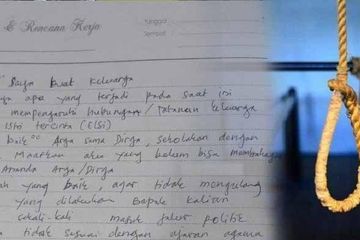 & Rencana Kerja
Tunggu
Saya buat keluarga
apa yang terjadi pada saat ini
mempengaruhi hubungan / tatanan keluarga
Istri tercinta (Elsi)
baik² Arga sama Dirga, sekolahkan dengan
Maafkan aku yang belum bisa membahagia
Ananda Arga/Dirga
yang baik, agar tidak mengulang
yang dilakukan Bapak kalian
sekali-kali masuk jalur politik
tidak sesuai dengan ajaran agama